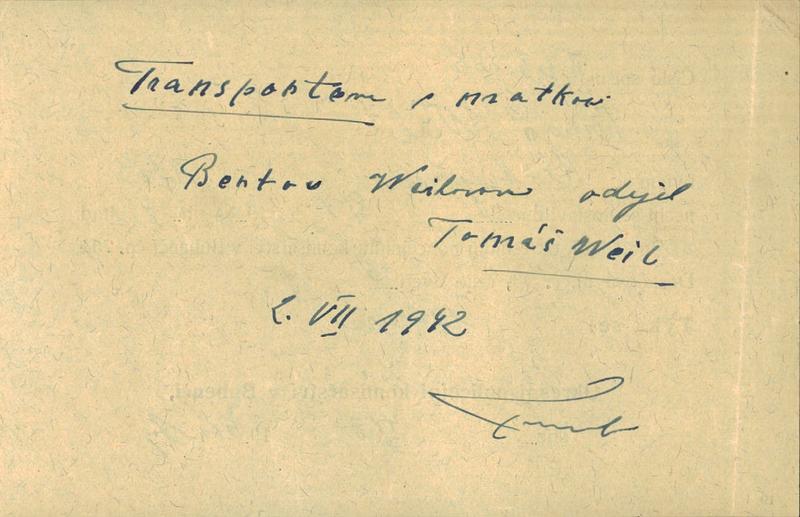 Transportem s matkou
Bertou Weilovou odejel
Tomáš Weil
2. VII 1942